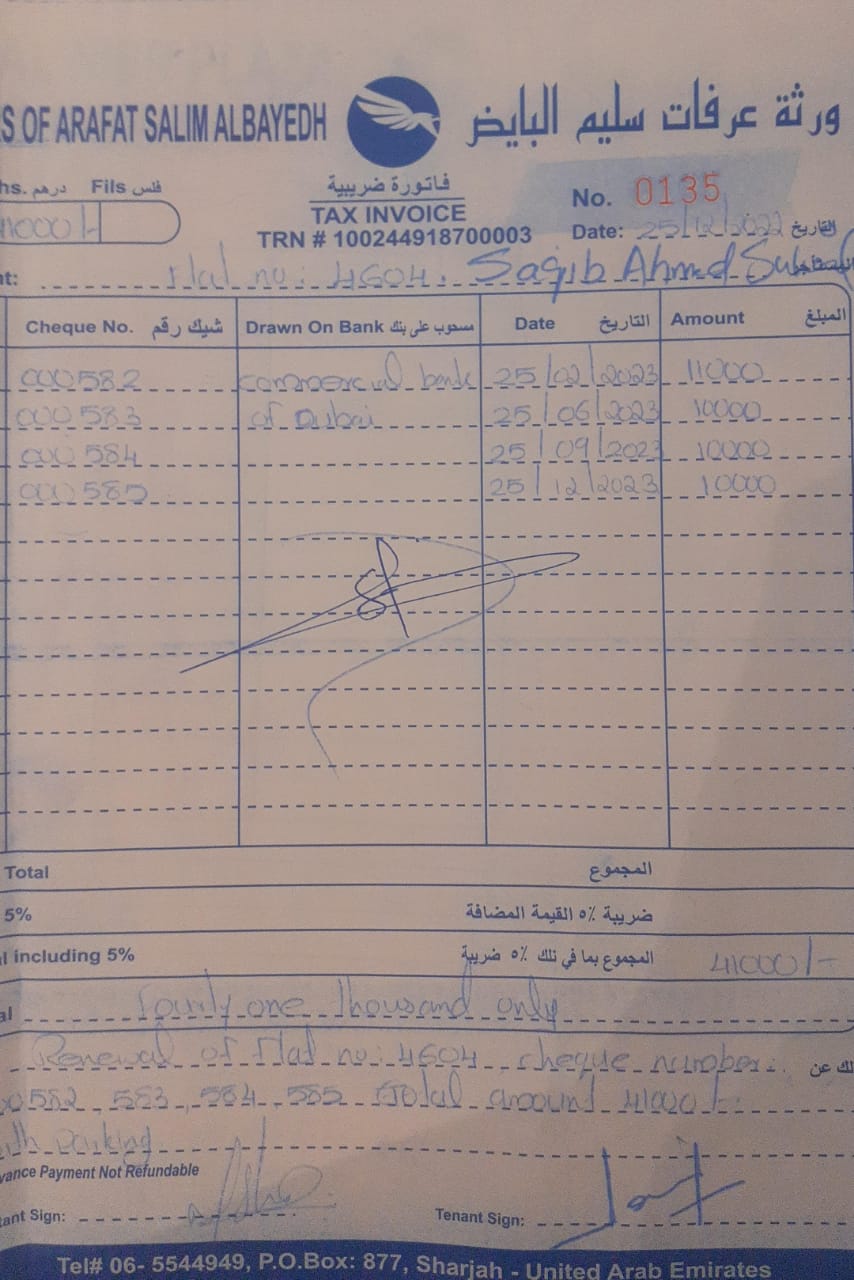 S OF ARAFAT SALIM ALBAYEDH ورثة عرفات سليم البايض
hs. درهم Fils فلس
41000/-
فاتورة ضريبية
TAX INVOICE
TRN # 100244918700003
No. 0135
Date: 25/12/2022 التاريخ
nt: Flat no: 4604. Saqib Ahmd
Cheque No. شيك رقم Drawn On Bank مسحوب على بنك Date التاريخ Amount المبلغ
000582 commercial bank 25/02/2023 11000
000583 of Dubai 25/06/2023 10000
000584 25/09/2023 10000
000585 25/12/2023 10000
Total المجموع
5% ضريبة ٥٪ القيمة المضافة
l including 5% المجموع بما في ذلك ٥٪ ضريبة 41000/-
al fourty one thousand only
Renewal of Flat no: 4604 cheque number: لك عن
00582, 583, 584, 585 total amount 41000/-
ith parking
vance Payment Not Refundable
tant Sign: Tenant Sign:
Tel# 06- 5544949, P.O.Box: 877, Sharjah - United Arab Emirates